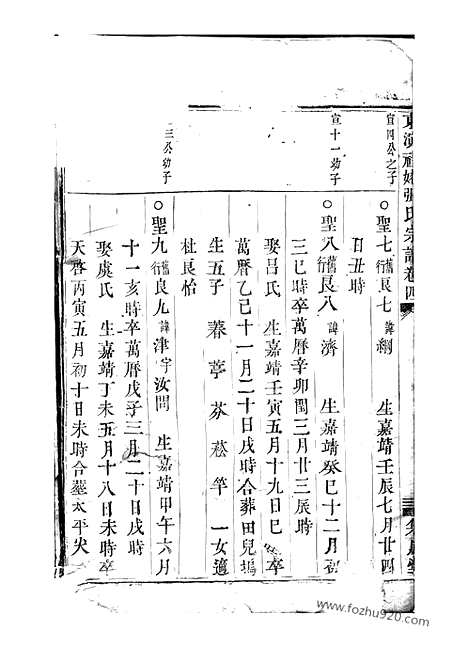 東演禮姥張氏宗譜卷四
宣四公之子
○聖七舊行良七諱綱　生嘉靖壬辰七月廿四
日丑時
宣十一幼子
○聖八舊行良八諱濟　生嘉靖癸巳十二月初
三巳時卒萬曆辛卯閏三月廿三辰時
娶呂氏　生嘉靖壬寅五月十九日巳　卒
萬曆乙巳十一月二十日戌時合葬田兒塢
生五子　葶　芬　菘　竿　一女適
杜良怡
三公幼子
○聖九舊行良九諱津字汝問　生嘉靖甲午六月
十一亥時卒萬曆戊子三月二十日戌時
娶虞氏　生嘉靖丁未五月十八日未時卒
天啓丙寅五月初十日未時合墓太平尖
www.fozhu920.com